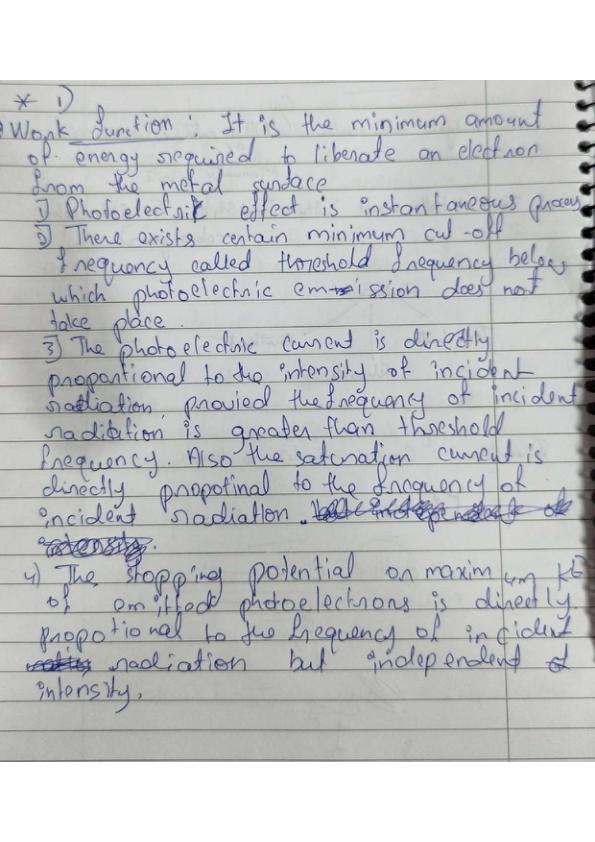 * 1)
Work function : It is the minimum amount
of energy required to liberate an electron
from the metal surface
1) Photoelectric effect is instantaneous process
2) There exists certain minimum cut-off
frequency called threshold frequency below
which photoelectric emission does not
take place.
3) The photoelectric current is directly
proportional to the intensity of incident
radiation, provied the frequency of incident
radiation is greater than threshold
frequency. Also the saturation current is
directly propotinal to the frequency of
incident radiation.
intensity.
4) The stopping potential or maximum KE
of emitted photoelectrons is directly
propotional to the frequency of incident
radiation but independent of
intensity.